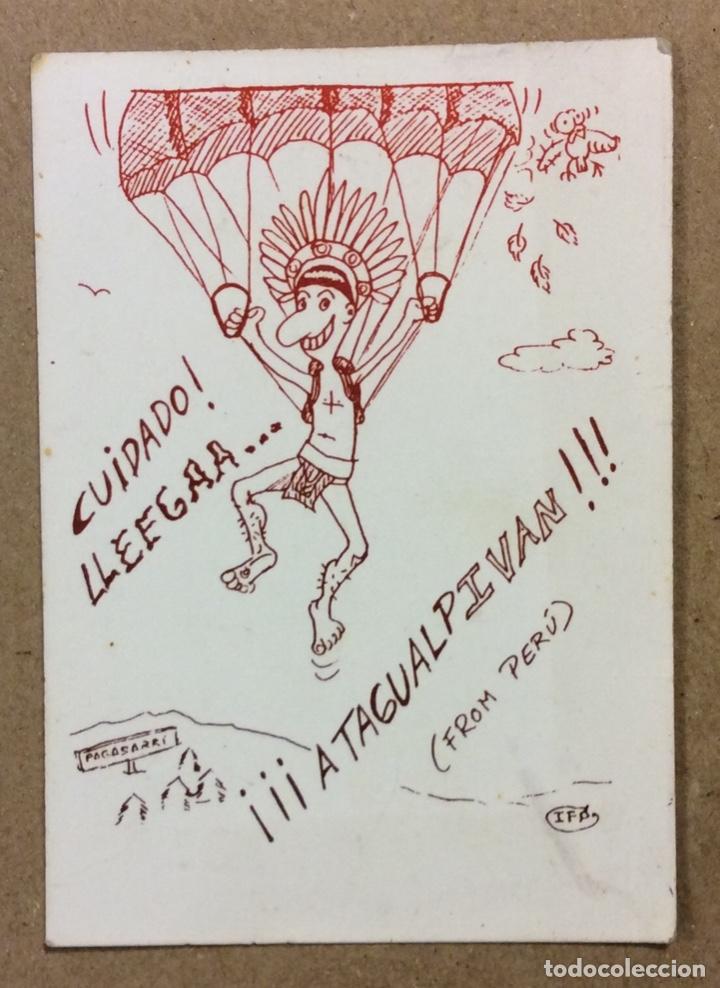 CUIDADO!
LLEEGAA...
¡¡¡ATAGUALPIVAN!!!
(FROM PERÚ)
PAGASARRI
IFB
todocoleccion